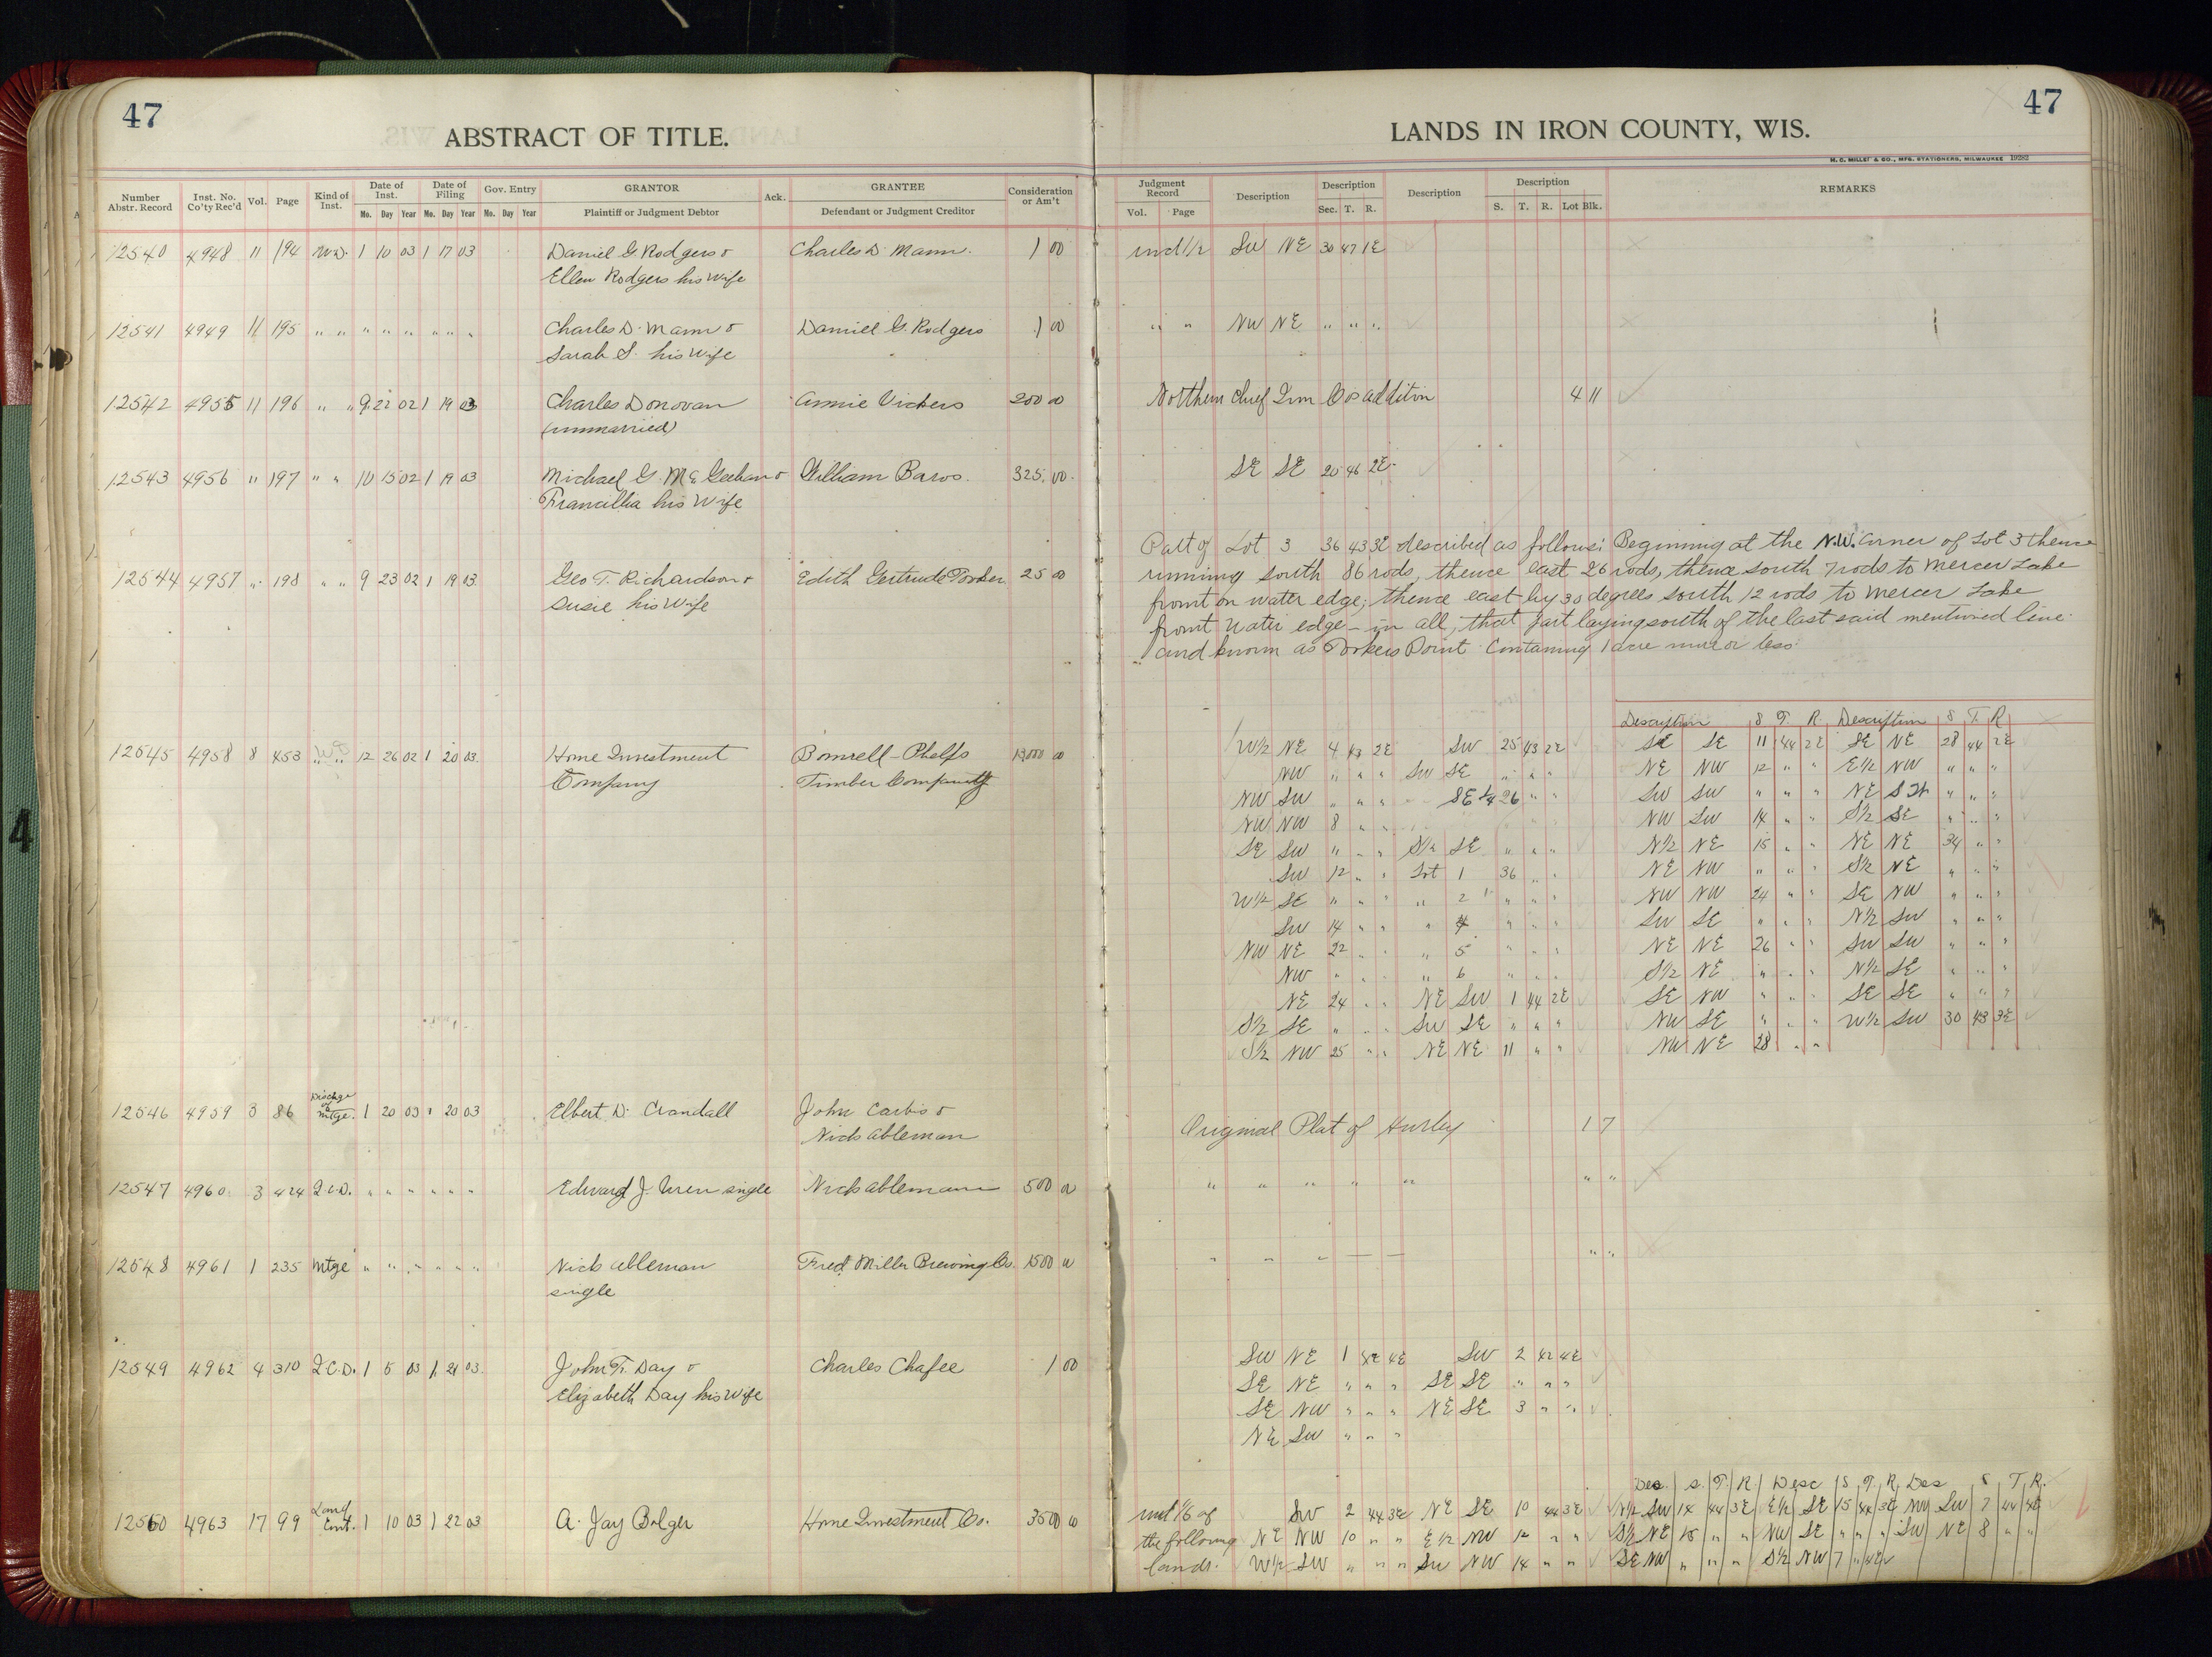 47
ABSTRACT OF TITLE.
Number Abstr. Record | Inst. No. Co'ty Rec'd | Vol. | Page | Kind of Inst. | Date of Inst. Mo. Day Year | Date of Filing Mo. Day Year | Gov. Entry Mo. Day Year | GRANTOR Plaintiff or Judgment Debtor | Ack. | GRANTEE Defendant or Judgment Creditor | Consideration or Am't
12540 4948 11 194 W.D. 1 10 03 1 17 03 Daniel G. Rodgers & Charles D. Mann. 1 00
Ellen Rodgers his wife
12541 4949 11 195 " " " " " " " " Charles D. Mann & Daniel G. Rodgers 1 00
Sarah S. his wife
12542 4955 11 196 " " 9 22 02 1 19 03 Charles Donovan Annie Vickers 200 00
(unmarried)
12543 4956 " 197 " " 10 15 02 1 19 03 Michael G. McGeehan & William Baros. 325.00
Francillia his wife
12544 4957 " 198 " " 9 23 02 1 19 03 Geo T. Richardson & Edith Gertrude Torker 25 00
Susie his wife
12545 4958 8 453 12 26 02 1 20 03 Home Investment Bonnell-Phelps 00
Company Timber Company
12546 4959 3 86 Dischge of Mtge. 1 20 03 1 20 03 Elbert D. Crandall John Carbis &
Nick Ableman
12547 4960 3 424 Q.C.D. " " " " " " Edward J. Uren single Nick Ableman 500 00
12548 4961 1 235 Mtge " " " " " " Nick Ableman Fred Miller Brewing Co. 1500 00
single
12549 4962 4 310 Q.C.D. 1 5 03 1 21 03 John F. Day & Charles Chafee 1 00
Elizabeth Day his wife
12550 4963 17 99 Land Cont. 1 10 03 1 22 03 A. Jay Bolger Home Investment Co. 3500 00
47
LANDS IN IRON COUNTY, WIS.
H. C. MILLER & CO., MFG. STATIONERS, MILWAUKEE 19282
Judgment Record Vol. Page | Description | Description Sec. T. R. | Description | Description S. T. R. Lot Blk. | REMARKS
und 1/2 SW NE 30 47 1E
" " NW NE " " "
Northern Chief Iron Co's addition 4 11
SE SE 20 46 2E
Part of Lot 3 36 43 3E described as follows: Beginning at the N.W. corner of Lot 3 thence
running south 86 rods, thence east 26 rods, thence south 7 rods to Mercer Lake
front on water edge; thence east by 30 degrees south 12 rods to Mercer Lake
front water edge - in all, that part laying south of the last said mentioned line
and known as Torkers Point Containing 1 acre more or less.
Description S T. R. Description S T. R
W1/2 NE 4 43 2E SW 25 43 2E SE SE 11 44 2E SE NE 28 44 2E
NW " " " SW SE " " " NE NW 12 " " E1/2 NW " " "
NW SW " " " SE 1/4 26 " " SW SW " " " NE SW " " "
NW NW 8 " " NW SW 14 " " S1/2 SE " " "
SE SW " " " S1/2 SE " " " N1/2 NE 15 " " NE NE 34 " "
SW 12 " " Lot 1 36 " " NE NW " " " S1/2 NE " " "
W1/2 SE " " " " 2 " " " NW NW 24 " " SE NW " " "
SW 14 " " " 4 " " " SW SE " " " N1/2 SW " " "
NW NE 22 " " " 5 " " " NE NE 26 " " SW SW " " "
NW " " " " 6 " " " S1/2 NE " " " N1/2 SE " " "
NE 24 " " NE SW 1 44 2E SE NW " " " SE SE " " "
S1/2 SE " " " SW SE " " " NW SE " " " W1/2 SW 30 43 3E
S1/2 NW 25 " " NE NE 11 " " NW NE 28 " "
Original Plat of Hurley 1 7
" " " " " " "
" " " — — " "
SW NE 1 42 4E SW 2 42 4E
SE NE " " " SE SE " " "
SE NW " " " NE SE 3 " "
NE SW " " "
Des. S. T. R. Desc S T. R. Des S T. R.
und 1/6 of SW 2 44 3E NE SE 10 44 3E N1/2 SW 14 44 3E E1/2 SE 15 44 3E NW SW 7 44 4E
the following NE NW 10 " " E1/2 NW 12 " " S1/2 NE 15 " " NW SE " " " SW NE 8 " "
lands: W1/2 SW " " " SW NW 14 " " SE NW " " " S1/2 NW 7 " 4E